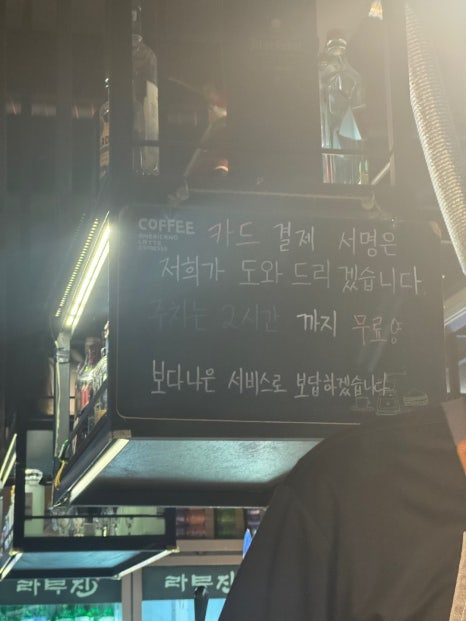 COFFEE
AMERICANO
LATTE
ESPRESSO
카드 결제 서명은
저희가 도와드리겠습니다.
주차는 2시간 까지 무료양
보다나은 서비스로 보답하겠습니다.
라부진
라부진